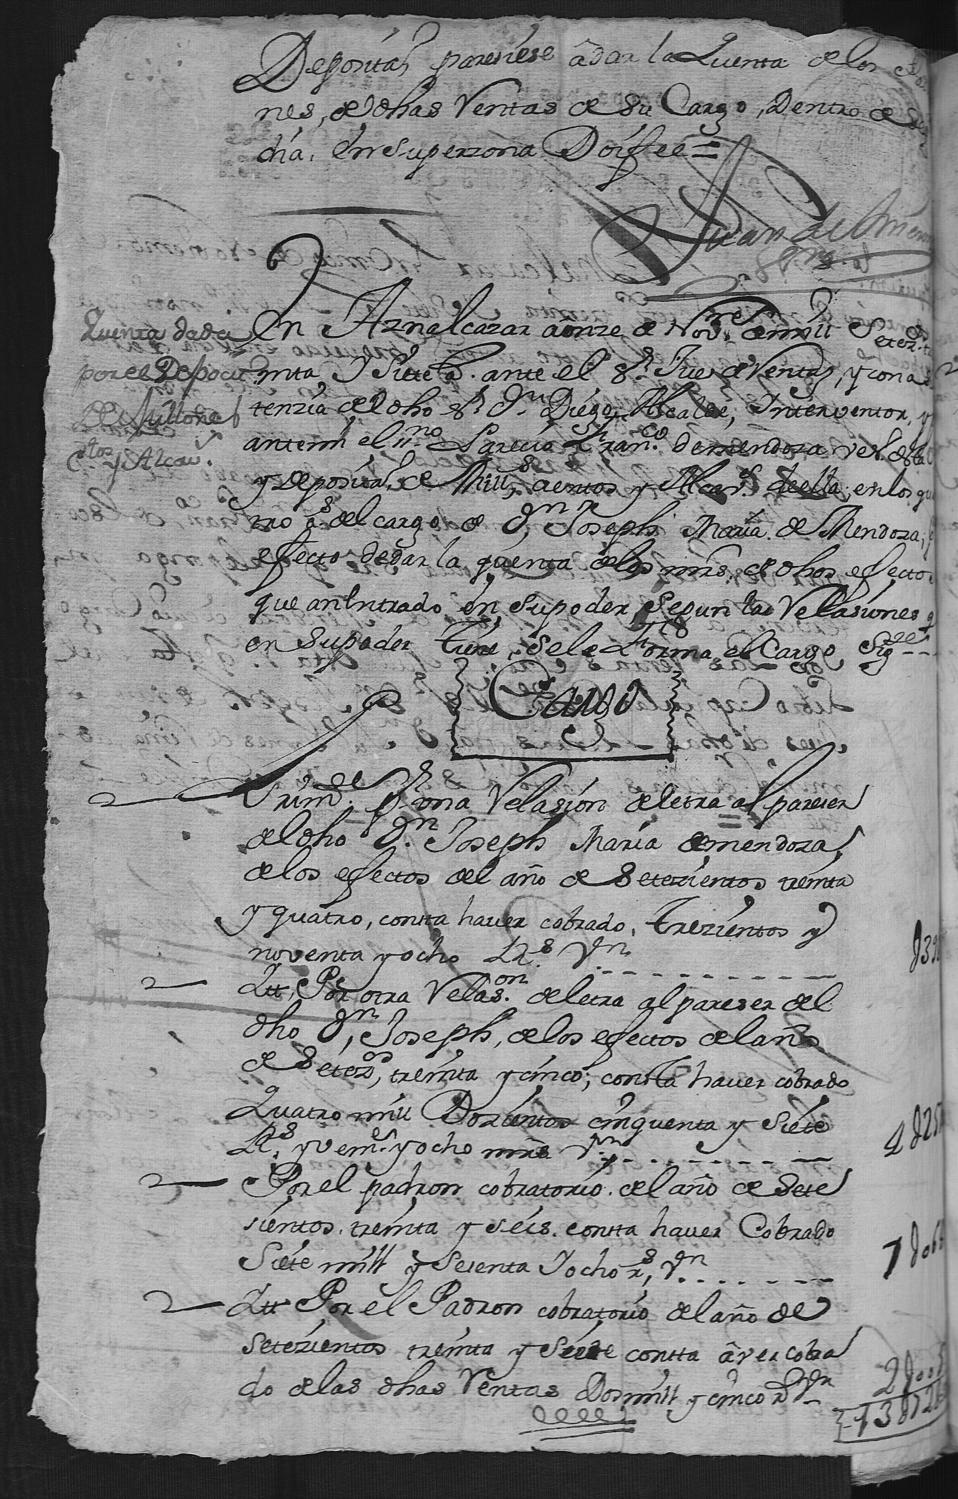 Depositº paresiese â dar la Quenta de los
nes, de dhas Ventas de su Cargo, Dentro de
dia, en su perzona Doi fee =
Juan de
Quenta dada
por el Depocit
de Millones
ctos y Alcav.
En Aznalcazar a onze de Novre de mill Setez.
treinta y Siete as. ante el Sr. Jues de Ventas, y con a
tenzia del dho Sr. Dn Diego Alcalde, Interventor, y
ante mi el ssno Parecio Franco de mendoza vezo desta
y Deposito de Mills, cientos y Alcavs de ella, en los qua
tro as del cargo de Dn Joseph Maria de Mendoza,
efecto de dar la quenta de los mrs, de dhos efectos
que an entrado en su poder segun las Velasiones q
en su poder tiene, se le forma el Cargo Sigte
Cargo
Primte Por una Velasion de letra al pareser
del dho Dn Joseph Maria de mendoza,
de los efectos del año de Setezientos treinta
y quatro, consta haver Cobrado, trezientos y
noventa y ocho Rs Vn
Itt Por otra Velason de letra al pareser del
dho Dn Joseph, de los efectos del año
de Setezos, treinta y cinco, consta haver cobrado
Quatro mill Dozientos cinquenta y siete
Rs. y veinte y ocho mrs Vn
Por el padron cobratorio del año de Sete
sientos treinta y seis consta haver Cobrado
Siete mill y Sesenta y ocho rs, Vn
Itt Por el Padron cobratorio del año de
Setezientos treinta y siete consta aver cobra
do de las dhas Ventas Dos mill y cinco rs Vn